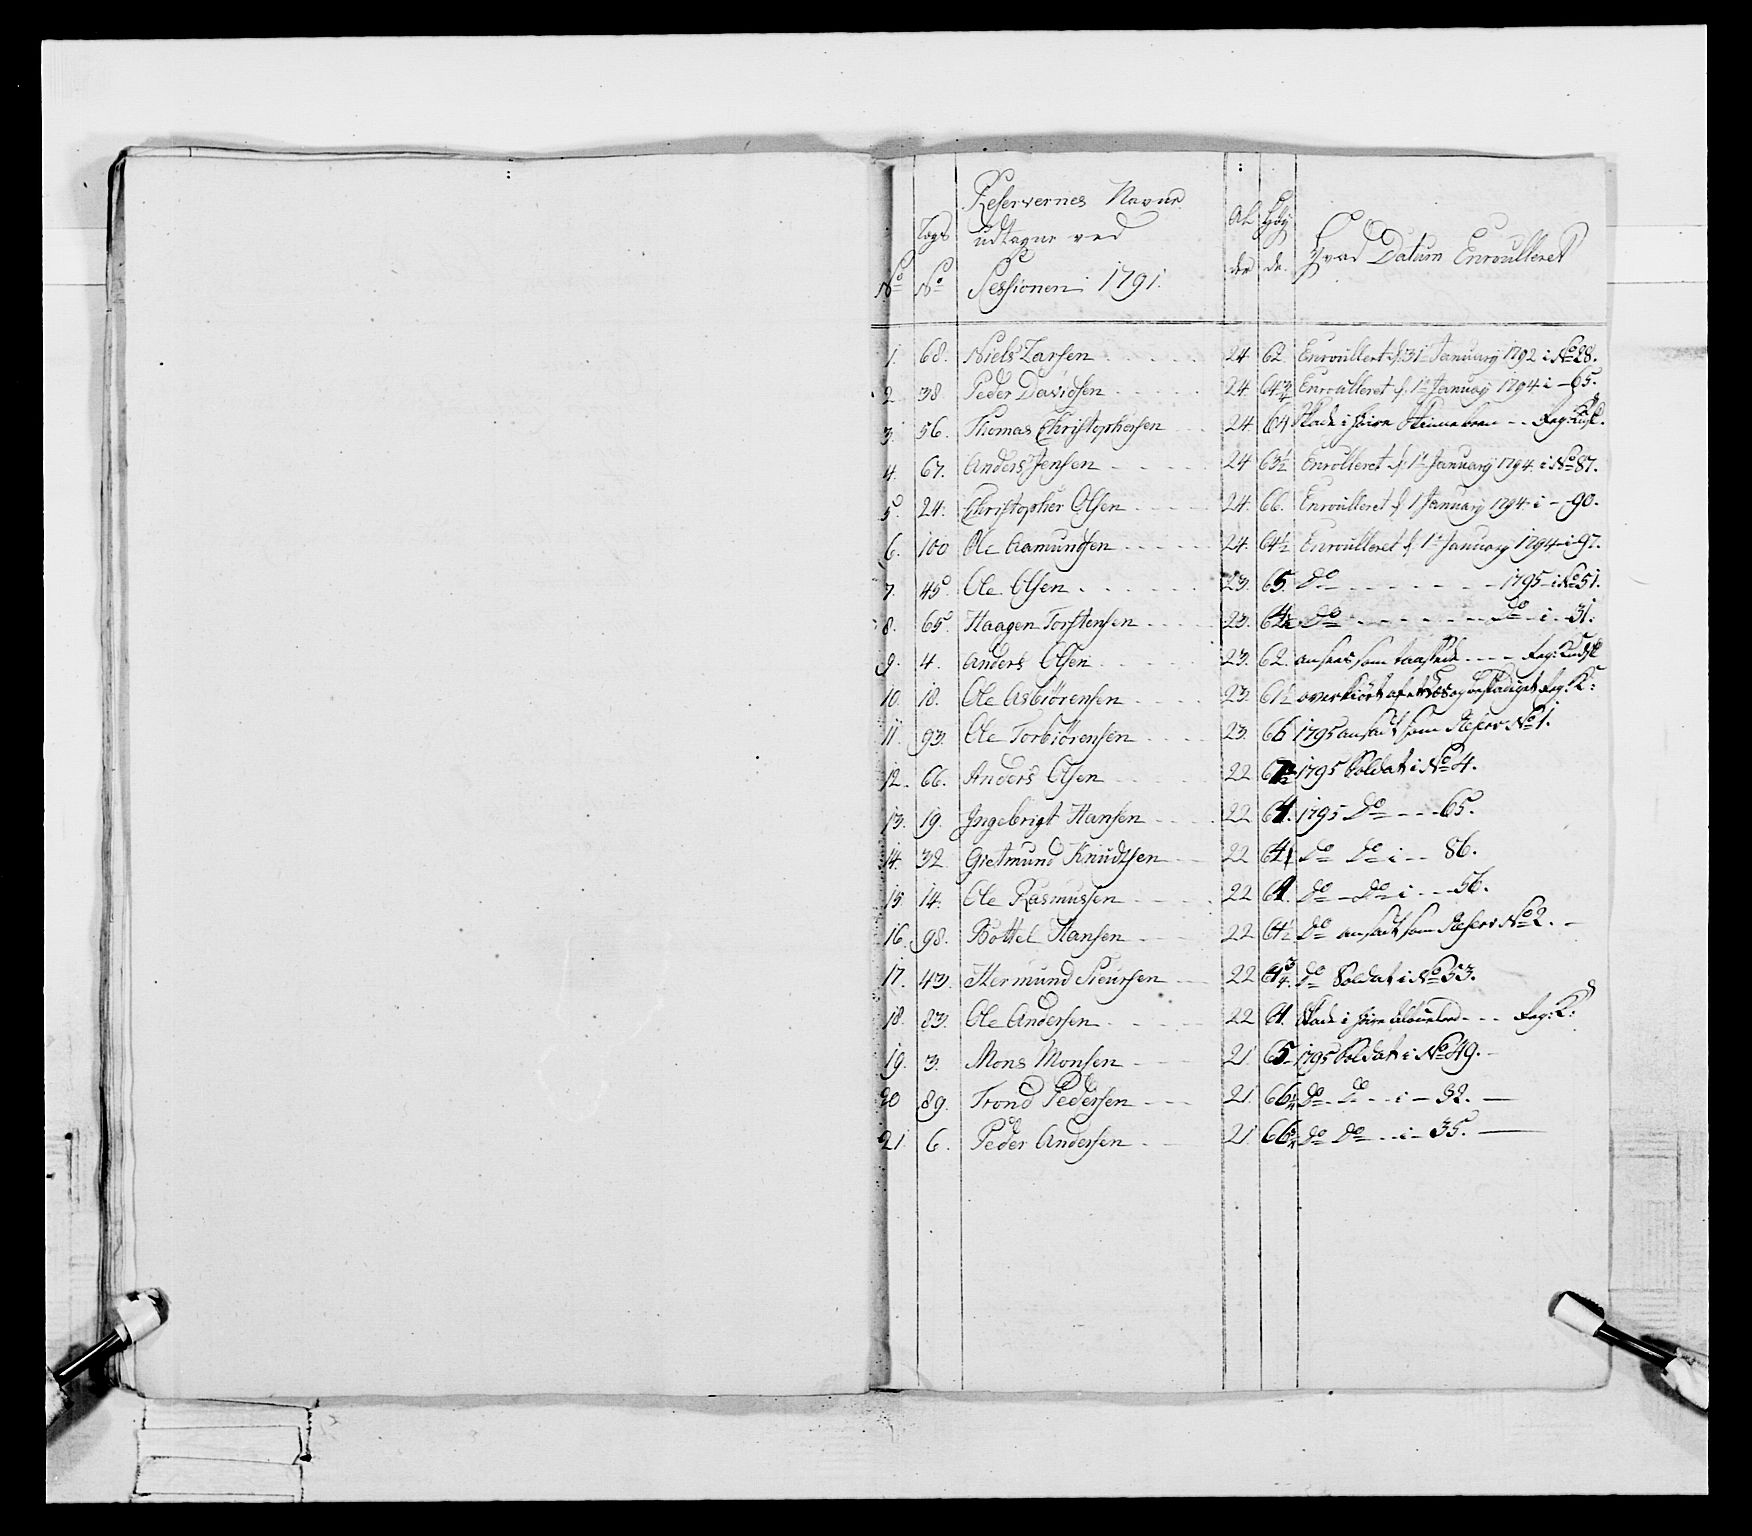 No Lægs No Reservernes Navne udtagne ved Sessionen i 1791. Al der Høy de. Hvad Datum Enroulleret
1. 68. Niels Larsen 24 62. Enroullert d: 31 January 1792 i No 28.
2. 38 Peder Davidsen 24. 64 3/4 Enroulleret d. 1te January 1794 i - 65.
3. 56. Thomas Christophersen 24. 64 Skade i høire
4. 67. Anders Jensen 24 63 1/2 Enrolleret d. 1te January 1794 i No 87.
5. 24. Christopher Olsen 24. 66. Enroulleret d. 1 January 1794 i - 90.
6. 100 Ole Aamundsen 24. 64 1/2 Enroulleret d. 1te January 1794 i 97.
7. 45. Ole Olsen 23. 65 Do 1795 i No 51.
8. 65. Haagen Torstensen 23. Do Do i - 31.
9. 4. Anders Olsen 23. 62. ansees som
10. 18. Ole Asbiørensen 23. 61 1/2 overkiørt af et og beskadiget Reg: K:
11. 93. Ole Torbiørensen 23. 66 1795 ansadt som Reserv No 1.
12. 66. Anders Olsen 22 1795 Soldat i No 4.
13. 19. Ingebrigt Hansen 22 64. 1795 Do 65.
14. 32 Gietmund Knudtsen 22 64 Do Do i - 86.
15 14. Ole Rasmussen 22 64. Do - Do i - 56.
16. 98. Bottel Hansen 22 64 1/2 Do ansadt som Reserv No 2.
17. 43. Hermund Siursen 22 64 3/4. Do Soldat i No 53.
18. 83. Ole Andersen 22 64. Skade i høire Reg: K:
19. 3. Mons Monsen 21. 65 1795 Soldat i No 49.
20 89. Trond Pedersen 21. 66 1/4 Do - Do - i - 32.
21. 6. Peder Andersen 21 66 3/4 Do Do - i - 35.